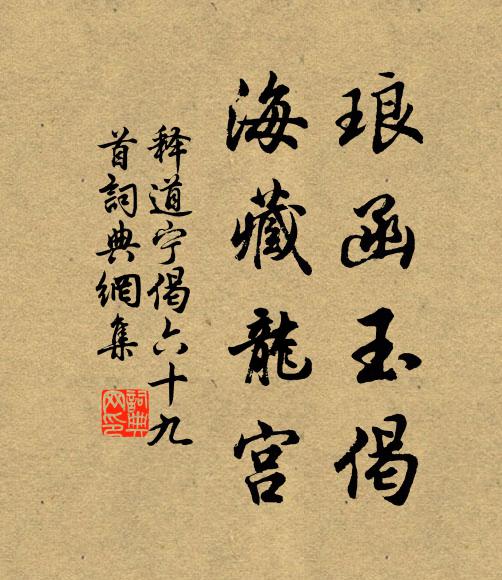 琅函玉偈
海藏龍宮
释道宁偈六十九
首詞典網集
詞典
网印